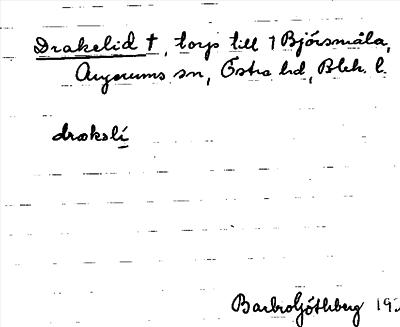 Drakelid †, torp till 1 Björsmåla,
Augerums sn, Östra hd, Blek. l.
drakslí
Barbro Göthberg 19